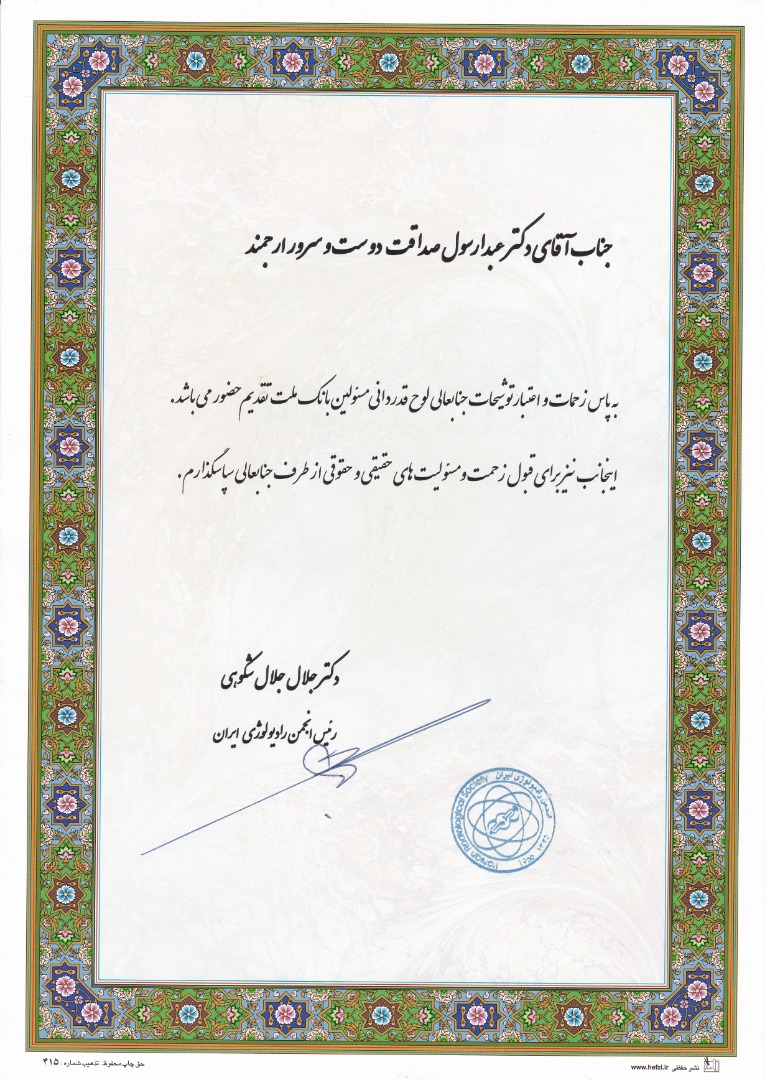 جناب آقای دکتر عبدارسول صداقت دوست و سرور ارجمند
به پاس زحمات و اعتبار توشیحات جنابعالی لوح قدردانی مسئولین بانک ملت تقدیم حضور می باشد.
اینجانب نیز برای قبول زحمت و مسئولیت های حقیقی و حقوقی از طرف جنابعالی سپاسگذارم.
دکتر جلال جلال شکوهی
رئیس انجمن رادیولوژی ایران
انجمن رادیولوژی ایران
Iranian Radiological Society
حق چاپ محفوظ. تذهیب شماره: ۴۱۵
نشر حفظی www.hefzi.ir